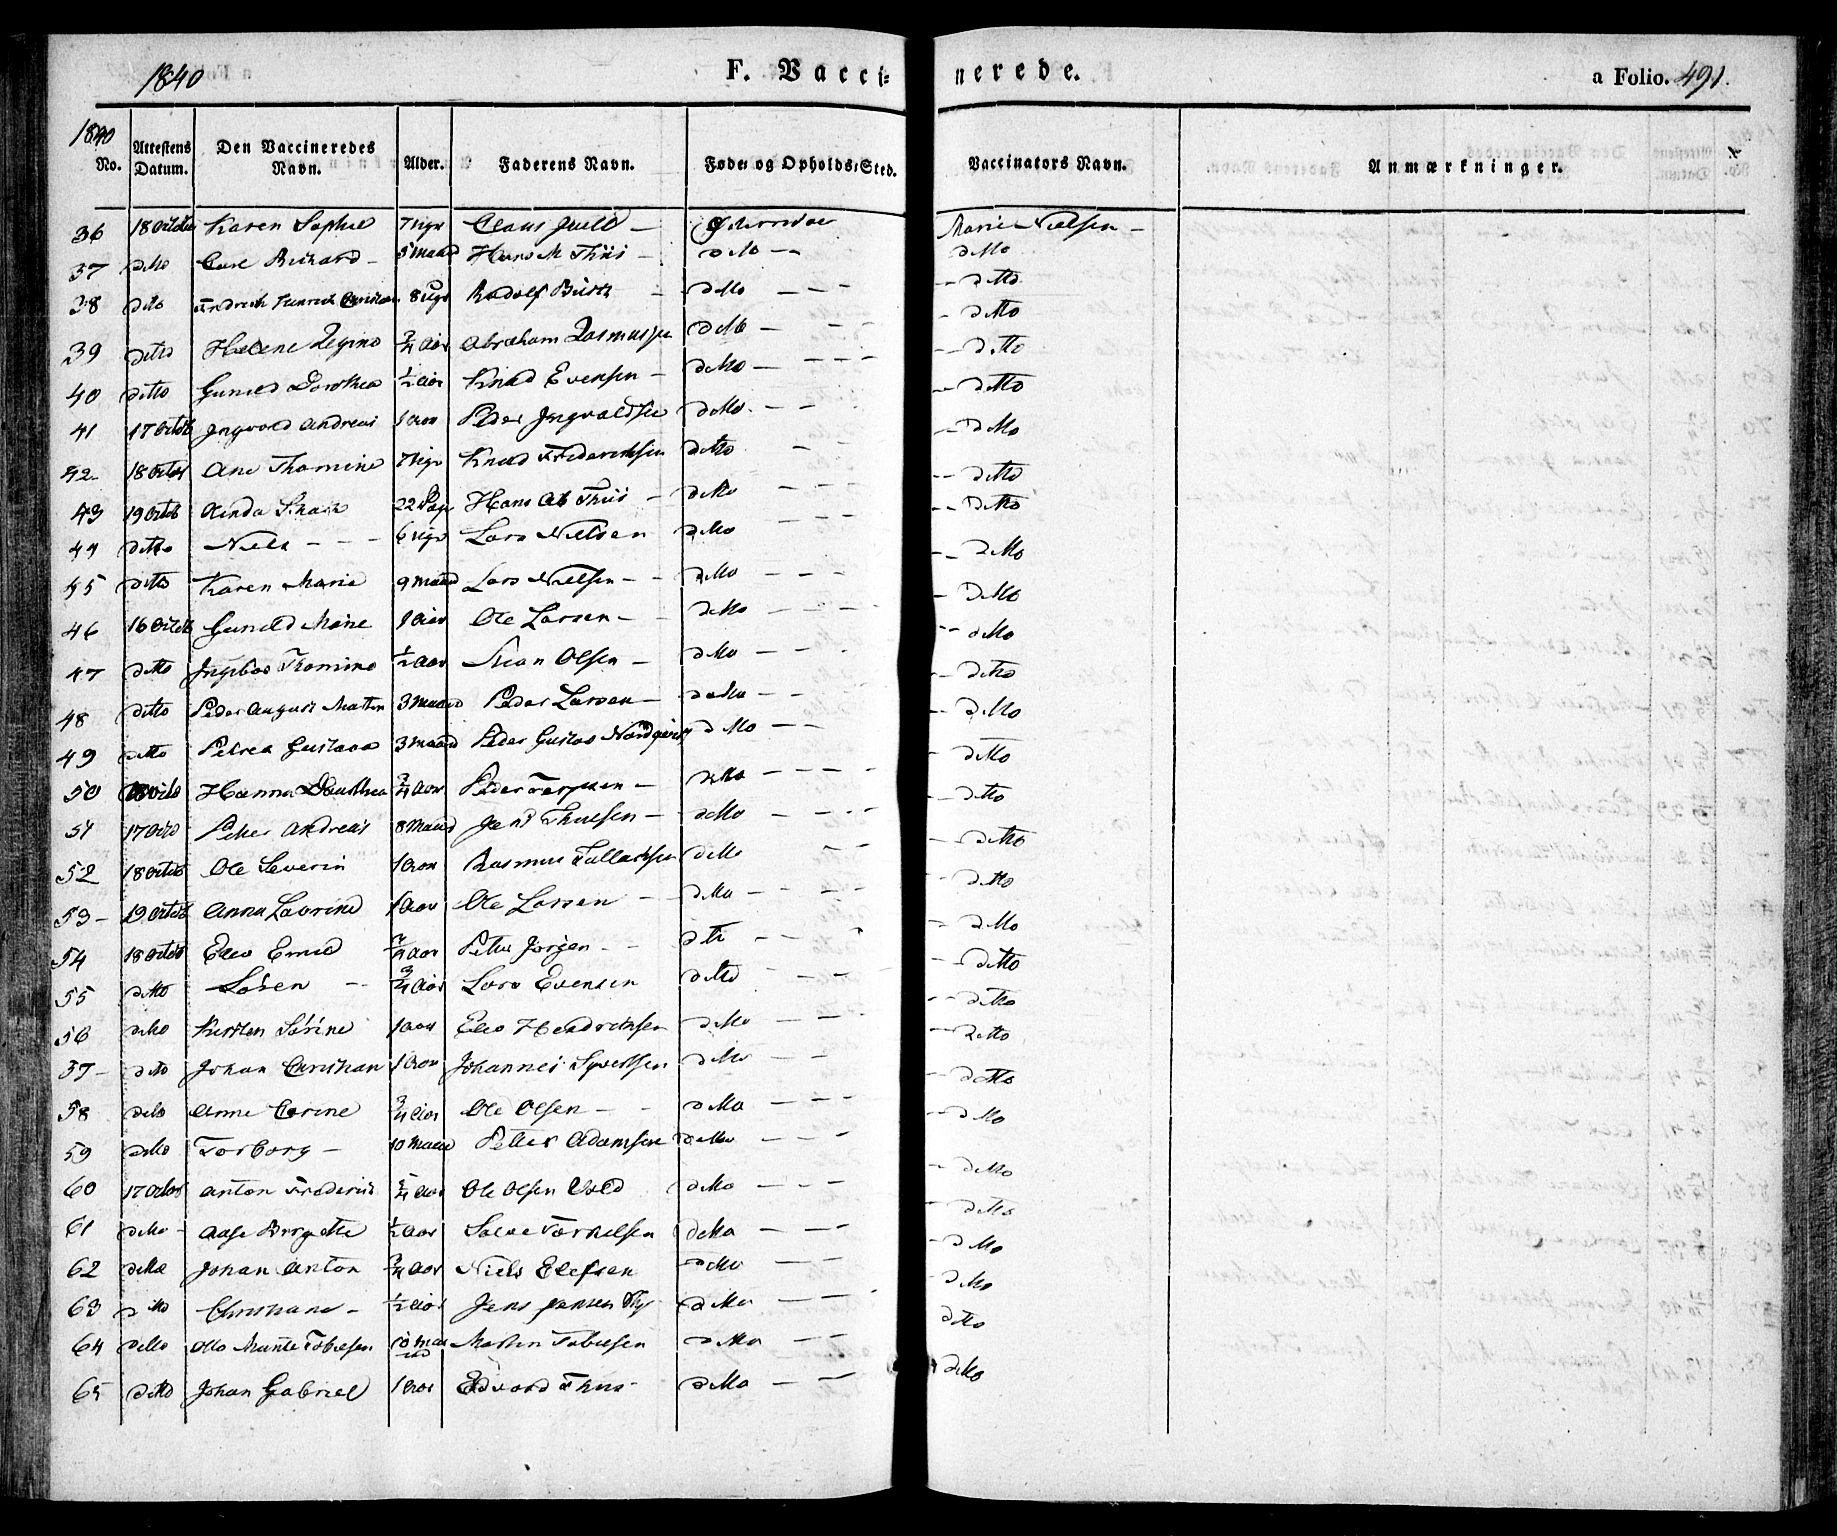 1840 F. Vacci- nerede. a Folio. 491.
1840
No. Attestens Datum. Den Vaccineredes Navn. Alder. Faderens Navn. Føde- og Opholds-Sted. Vaccinators Navn. Anmærkninger.
36 18 Octob Karen Sophie 7 Uger Claus Juell — Marie Nielsen —
37 ditto Carl Richard — 5 maand Hans M Thiis — ditto — ditto
38 ditto Fredrich Hinrich Christian 8 Uger Rodolf — ditto — — — ditto
39 ditto Helene Regine 3/4 aar Abraham Rasmussen ditto — ditto
40 ditto Gunild Dorthea 1/2 aar Knud Evensen — ditto — ditto
41 17 Octob Ingvard Andreas 1 aar Peder Ingvaldsen ditto — — ditto
42 18 Octob Ane Thomine 7 Uger Knud Frederichsen ditto — ditto
43 19 Octob 22 Dage Hans Thiis — ditto — ditto
44 ditto Niels — — — 6 Uger Lars Nielsen ditto — ditto
45 ditto Karen Marie 9 maand Lars Nielsen — ditto — — — ditto
46 16 Octob Gunild Marie 1 aar Ole Larsen — ditto — — — ditto
47 ditto Ingebor Thomine 1/2 aar Olsen — ditto — — ditto
48 ditto Peder August Martin 3 maand Peder Larsen — ditto — — ditto
49 ditto Petrea Gustava 3 maand Peder Gustav Nordqvist ditto — — ditto
50 18 Octo Hanna Dorthea 3/4 aar Peder — ditto — — — ditto
51 17 Octo Peter Andreas 8 maand Jens Thuesen — ditto — — ditto
52 18 Octob Ole Severin 1 aar Rasmus Tallachsen ditto — ditto
53 — 19 Octob Anna Lovrine 1 aar Ole Larsen — ditto — — ditto
54 18 Octob Elev aar Peter Jorgen — ditto — — ditto
55 ditto Søren — 3/4 aar Lars Evensen ditto — ditto
56 ditto Kirsten Sørine 1 aar Elev Hendrichsen ditto — — — ditto
57 — ditto Johan Christian 1 aar Johannes Syvertsen ditto — — ditto
58 ditto Anne Corine 3/4 aar Ole Olsen — ditto — — — ditto
59 ditto Torborg — 10 maand Petter Adamsen ditto — — — ditto
60 17 Octob Anton Frederik 5/4 aar Ole Olsen ditto — — ditto
61 ditto — Aase Birgitte 1/2 aar Salve Torkelsen ditto — — — ditto
62 ditto Johan Anton 3/4 aar Niels Elefsen ditto — — — ditto
63 ditto Christiane — 1/2 aar Jens Jensen ditto — — — ditto
64 ditto Otto Munte Tobiesen 10 maand Morten Tobiesen ditto — — ditto
65 ditto Johan Gabriel 1 aar Edvard Thiis ditto — — — ditto